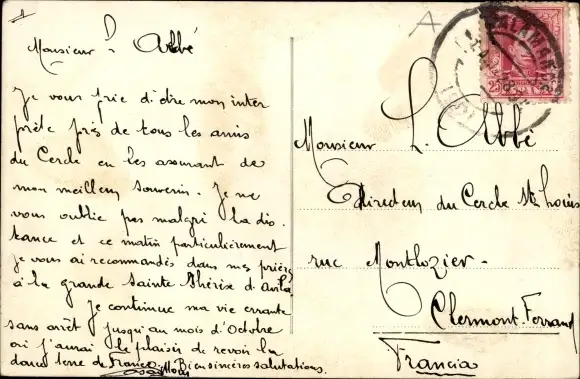 Monsieur L'Abbé
Je vous prie d'être mon inter
prète près de tous les amis
du Cercle en les assurant de
mon meilleur souvenir. Je ne
vous oublie pas malgré la dis
tance et ce matin particulièrement
je vous ai recommandés dans mes prières
à la grande Sainte Thérèse d'Avila.
Je continue ma vie errante
sans arrêt jusqu'au mois d'Octobre
où j'aurai le plaisir de revoir la
douce terre de France. Bien sincères salutations.
A
SALAMANCA
25
Monsieur L. Abbé
Directeur du Cercle St Louis
rue Montlozier -
Clermont-Ferrand
Francia